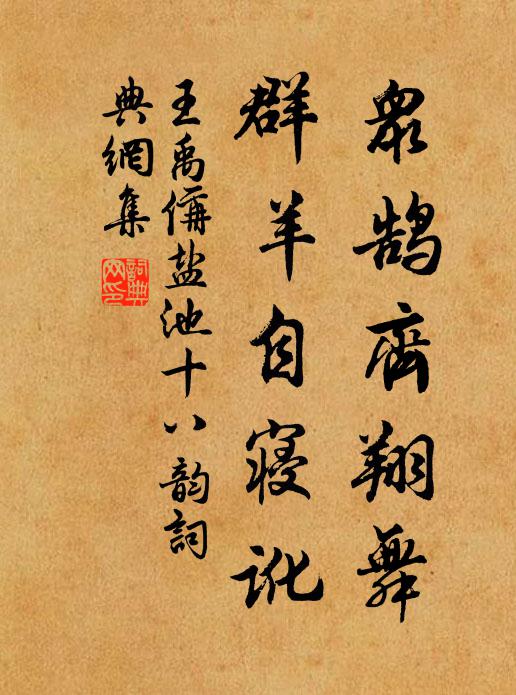 眾鹄齊翔舞
群羊自寝訛
王禹偁盐池十八韵詞
典網集
詞典
网印